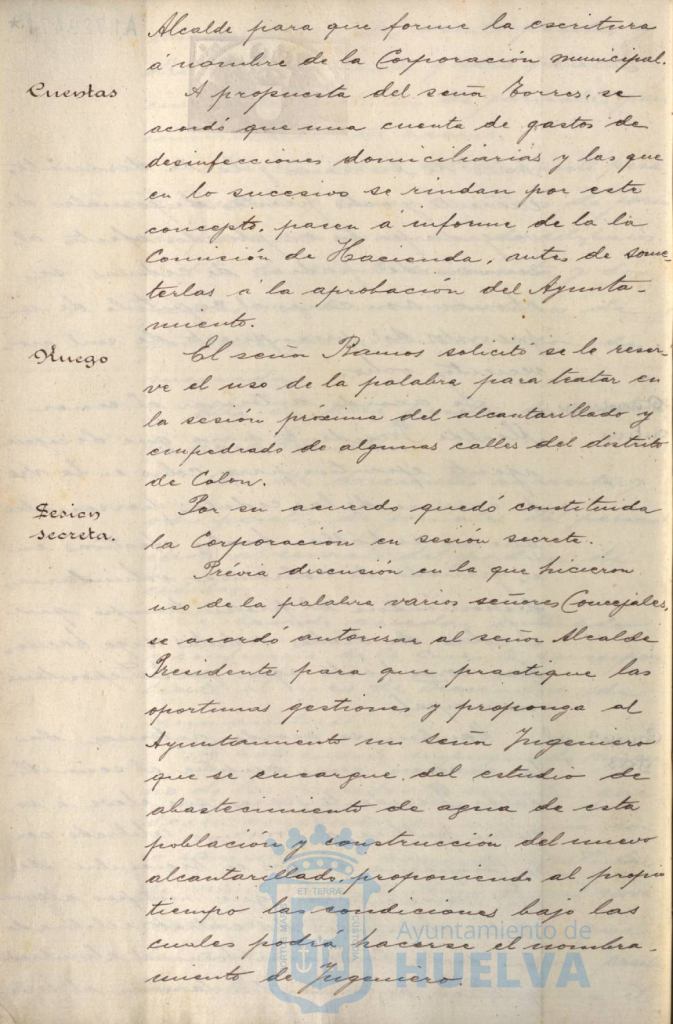 Alcalde para que forme la escritura
á nombre de la Corporación municipal.
Cuentas
A propuesta del señor Torres, se
acordó que una cuenta de gastos de
desinfecciones domiciliarias y las que
en lo sucesivo se rindan por este
concepto, pasen á informe de la la
Comisión de Hacienda, antes de some-
terlas á la aprobación del Ayunta-
miento.
Ruego
El señor Ramos solicitó se le reser-
ve el uso de la palabra para tratar en
la sesión próxima del alcantarillado y
empedrado de algunas calles del distrito
de Colon.
Sesion
secreta.
Por su acuerdo quedó constituida
la Corporación en sesión secreta.
Prévia discusión en la que hicieron
uso de la palabra varios señores Concejales,
se acordó autorisar al señor Alcalde
Presidente para que practique las
oportunas gestiones y proponga al
Ayuntamiento un señor Ingeniero
que se encargue del estudio de
abastecimiento de agua de esta
población y construcción del nuevo
alcantarillado, proponiendo al propio
tiempo las condiciones bajo las
cuales podrá hacerse el nombra-
miento de Ingeniero.
ET TERRAE
Ayuntamiento de
HUELVA